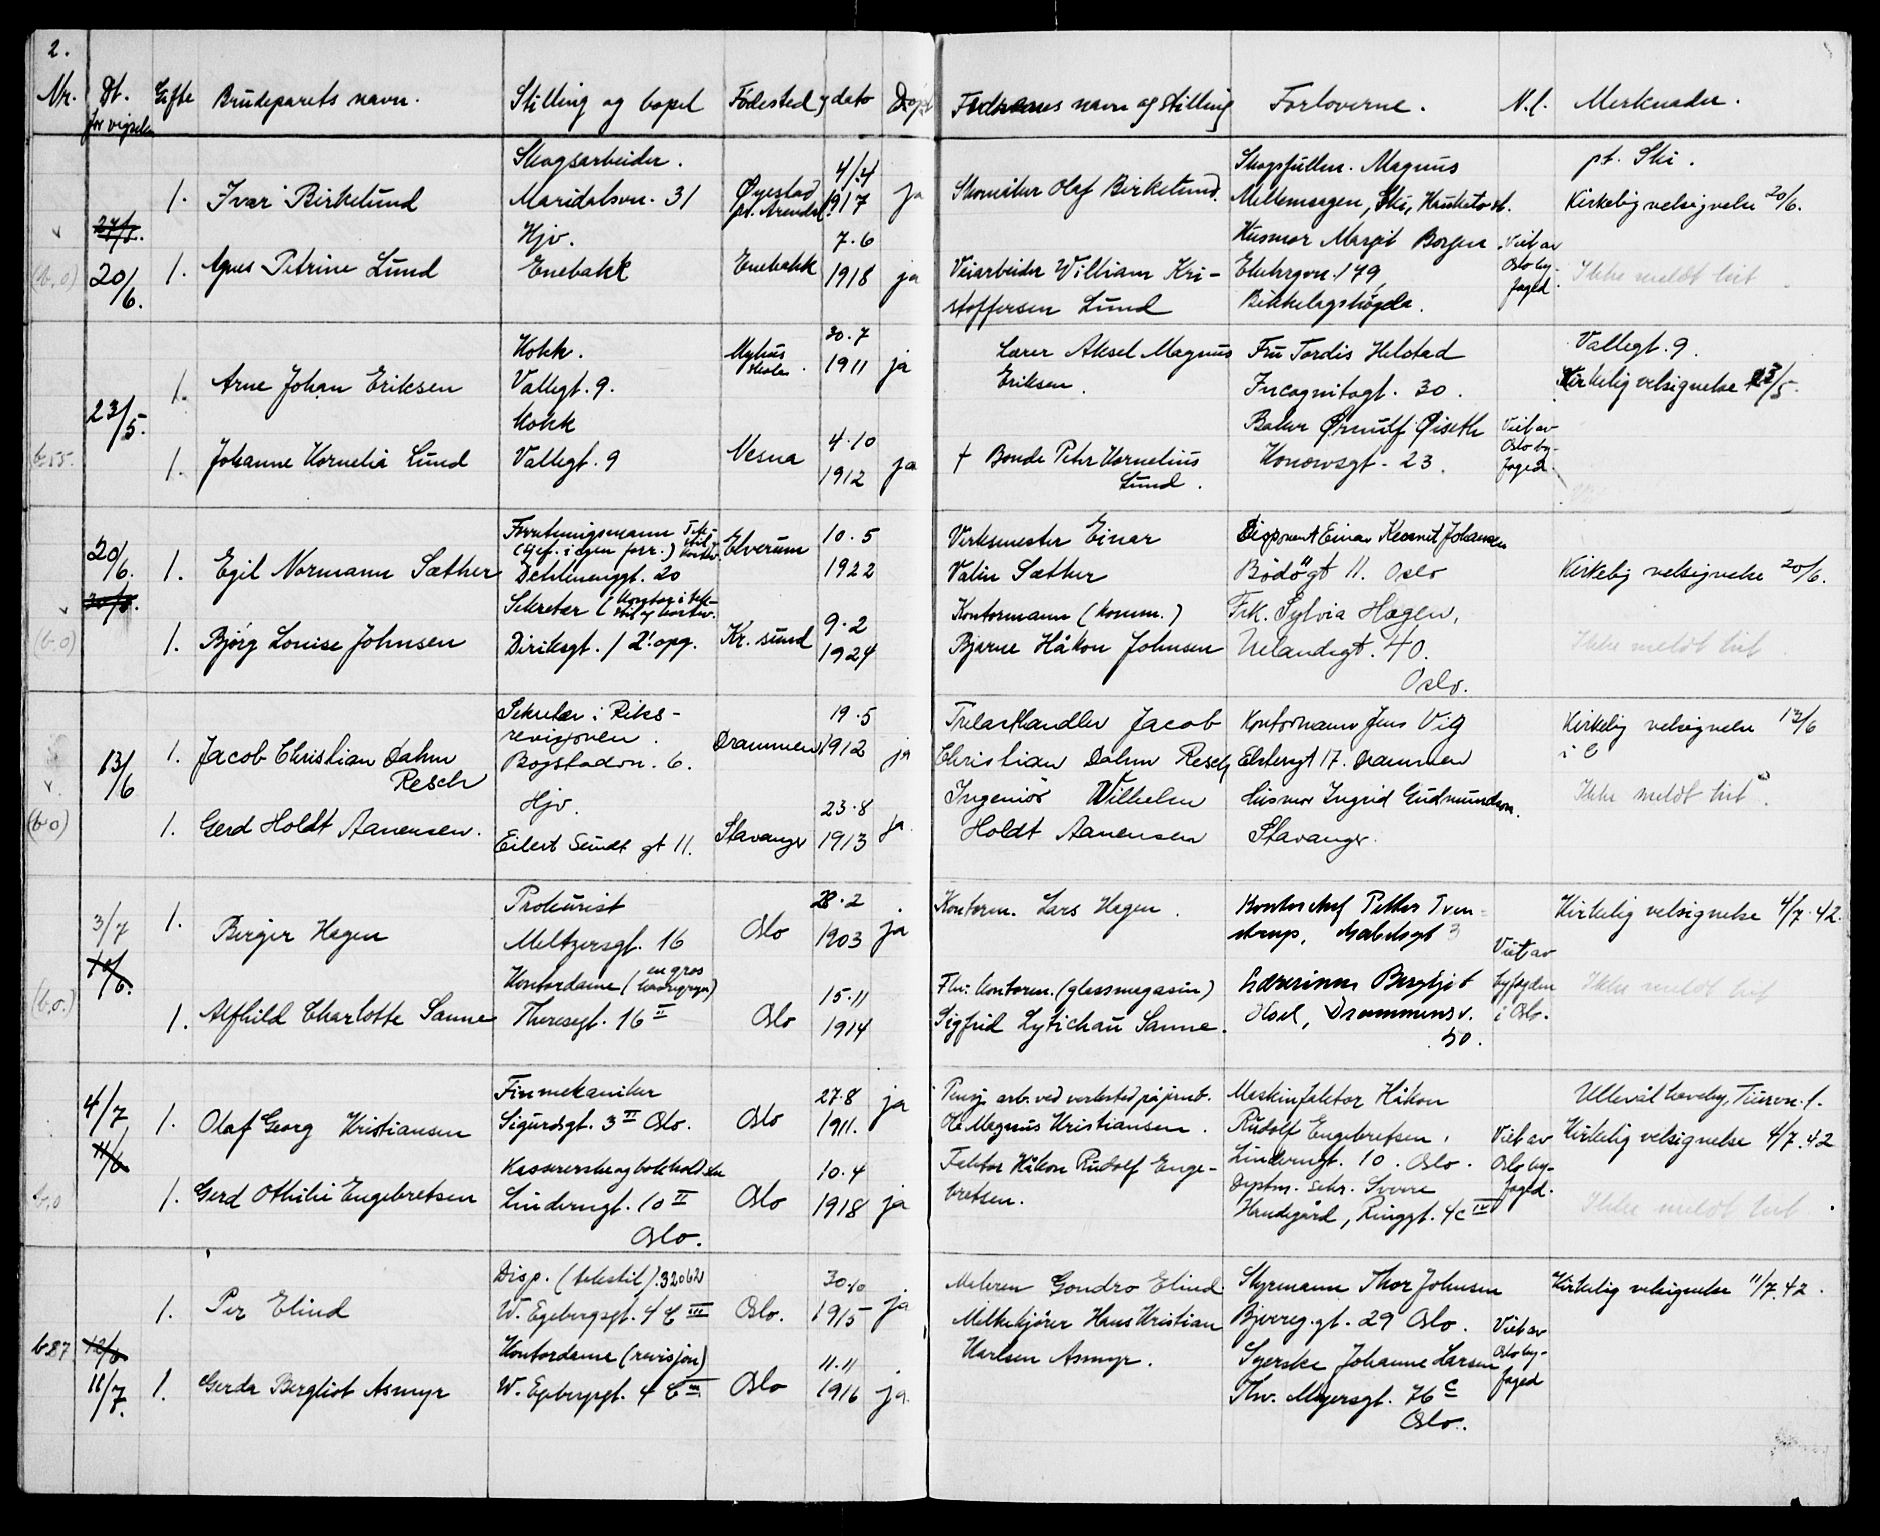 2.
Nr. Dt. for vigselen Gifte Brudeparets navn. Stilling og bopel Födested, dato Döpt Fedrenes navn og stilling Forloverne. N.l. Merknader.
Skogsarbeider. 4/4 Skogsfullm. Magnus pt. Ski.
1. Ivar Birkelund Maridalsvn. 31 Øyestad pr. Arendal 1917 ja Skomaker Olaf Birkelund. Mellemsagen, Ski, Kirkelig velsignelse 20/6.
Hjv. 7.6 Husmor Margit Borgen Viet av
(b,o) 20/6. 1. Agnes Petrine Lund Enebakk Enebakk 1918 ja Veiarbeider William Kri- Ekebrgvn. 179, Oslo by- Ikke meldt hit
stoffersen Lund Bekkelagshøgda. foged.
Kokk. 30.7 Lærer Aksel Magnus Fru Tordis Helstad Vallegt. 9.
1. Arne Johan Eriksen Vallegt. 9. 1911 ja Eriksen. Incognitogt. 30. Kirkelig velsignelse 23/5.
23/5. Kokk 4.10 Baker Ørnulf Øiseth Viet av
b.55. 1. Johanne Kornelia Lund Vallegt. 9 Nesna 1912 ja † Bonde Peter Kornelius Konowsgt. 23. Oslo by-
Lund. foged.
20/6. Forretningsmann (Gef. i egen forr.) Elverum 10.5 Verksmester Einar Disponent Einar Johansen
1. Egil Normann Sæther Dehlinenggt. 20 1922 Valin Sæther Bodögt 11. Oslo Kirkelig velsignelse 20/6.
Sekretær 9.2 Kontormann (komm.) Frk. Sylvia Hagen,
(b.o) 1. Bjørg Louise Johnsen Diriksgt. 1 2. opg. Kr. sund 1924 Bjarne Håkon Johnsen Uelandsgt. 40. Ikke meldt hit.
Oslo.
Sekretær i Riks- 19.5 Trelasthandler Jacob Kontormann Jens Vig Kirkelig velsignelse 13/6
13/6 1. Jacob Christian Dahm revisjonen. Drammen 1912 ja Christian Dahm Resch gt 17. Drammen i
Resch Bogstadvn. 6.
Hjv. 23.8 Ingeniör Wilhelm Husmor Ingrid Gudmundsen. Ikke meldt hit.
(b o) 1. Gerd Holdt Aanensen. Eilert Sundt gt 11. Stavanger 1913 ja. Holdt Aanensen Stavanger.
Prokurist 28.2
3/7 1. Birger Hagen Meltzersgt. 16 Oslo 1903 ja Kontorm. Lars Hagen. Kontorchef Petter Tven- Kirkelig velsignelse 4/7.42.
strup, gt 3 Viet av
Kontordame (en gros 15.11 Fhv. kontorm. (glassmagasin) Lærerinne Bergljot byfogden Ikke meldt hit
(b.o.) 1. Alfhild Charlotte Sanne Theresegt. 16 II Oslo 1914 Sigfrid Lytichau Sanne. Hoel, Drammensv. i Oslo.
50.
4/7 Finmekaniker 27.8 ja Pensj. arb. ved verksted på jernb. Maskinfaktor Håkon Ullevål Haveby, 1.
1. Olaf Georg Kristiansen Sigurdsgt. 3 II Oslo. Oslo 1911. Ole Magnus Kristiansen. Rudolf Engebretsen, Viet av Kirkelig velsignelse 4/7.42
11/6 Kassererske og bokholderske 10.4 Faktor Håkon Rudolf Enge- Linderngt. 10. Oslo. Oslo by-
b,o 1. Gerd Othilie Engebretsen Linderngt. 10 II Oslo 1918 ja bretsen. Dyptm. sekr. Sverre foged. Ikke meldt hit.
Oslo. Handegård, Ringgt. 4c IV
Disp. (tekstil). 32062 30.10 Maleren Gondro Elind Styrmann Thor Johnsen Kirkelig velsignelse 11/7.42.
1. Per Elind W. Egebergsgt. 4 C III Oslo. 1915 ja Melkekjører Hans Kristian Bjerreg.gt. 29 Oslo. Viet av
b87 12/6 Kontordame (revisjon) 11.11 Karlsen Asmyr. Syerske Johanne Larsen Oslo by-
11/7. 1. Gerda Bergliot Asmyr W. Egebergsgt. 4 C III Oslo 1916 ja. Thv. Meyersgt. 76 c foged
Oslo.